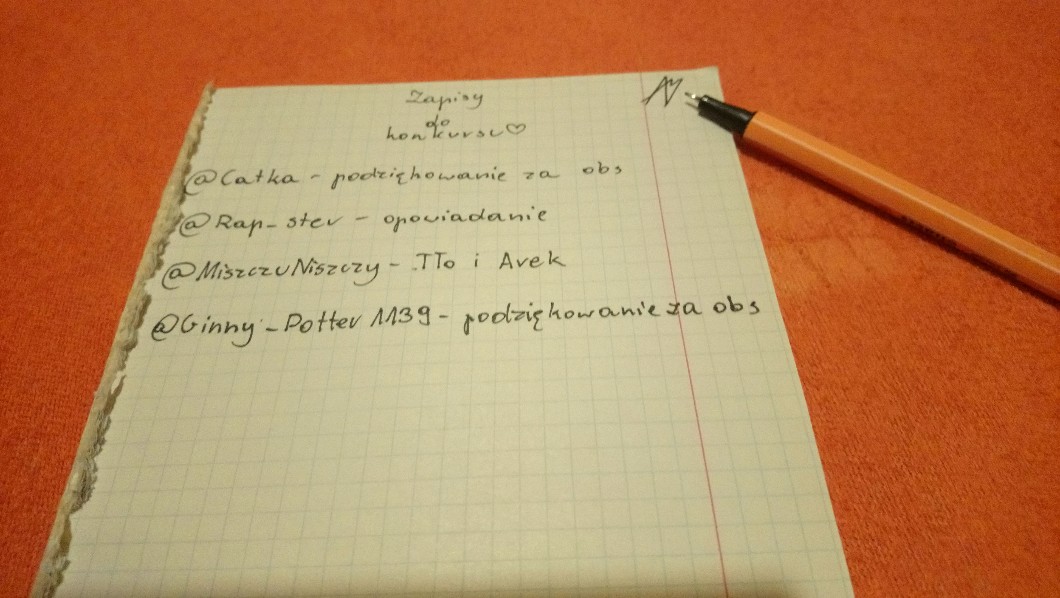 Zapisy
do
konkursu♡
@Catka - podziękowanie za obs
@Rap_ster - opowiadanie
@MiszczuNiszczy - Tło i Avek
@Ginny_Potter1139 - podziękowanie za obs